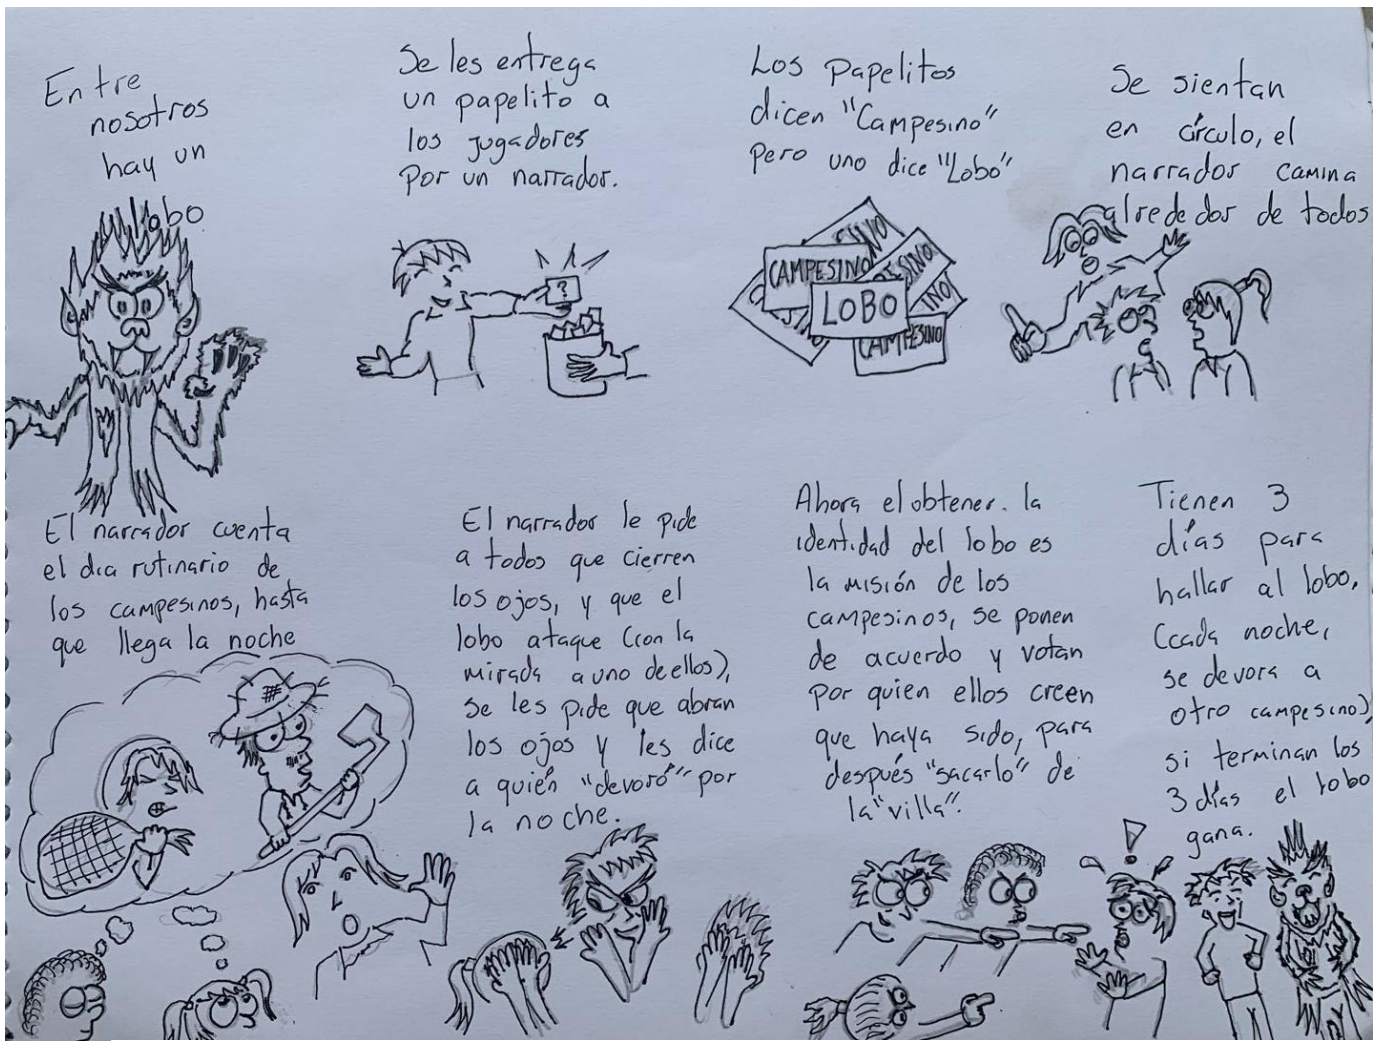 Entre
nosotros
hay un
lobo
Se les entrega
un papelito a
los jugadores
por un narrador.
?
Los Papelitos
dicen "Campesino"
pero uno dice "Lobo"
SINO
CAMPESINO
ESINO
LOBO
INO
CAMPESINO
Se sientan
en círculo, el
narrador camina
alrededor de todos
El narrador cuenta
el dia rutinario de
los campesinos, hasta
que llega la noche
El narrador le pide
a todos que cierren
los ojos, y que el
lobo ataque (con la
mirada a uno de ellos),
se les pide que abran
los ojos y les dice
a quién "devoró" por
la noche.
Ahora el obtener. la
identidad del lobo es
la misión de los
campesinos, se ponen
de acuerdo y votan
por quien ellos creen
que haya sido, para
después "sacarlo" de
la "villa".
!
Tienen 3
días para
hallar al lobo,
(cada noche,
se devora a
otro campesino),
si terminan los
3 días el lobo
gana.